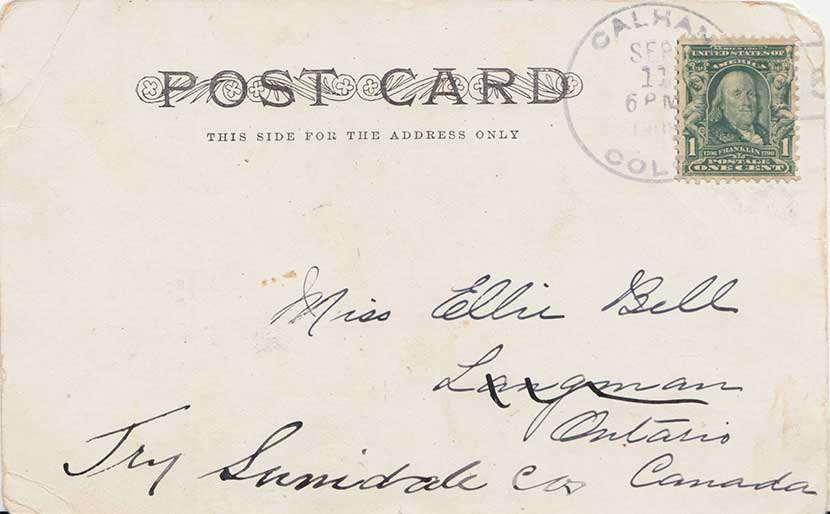 POST CARD
THIS SIDE FOR THE ADDRESS ONLY
CALHAN
SEP
11
6 PM
COLO
SERIES 1902
UNITED STATES OF
AMERICA
1 1706 FRANKLIN 1790 1
POSTAGE
ONE CENT
Miss Ellie Bell
Langman
Ontario
Try Sunidale Cor Canada